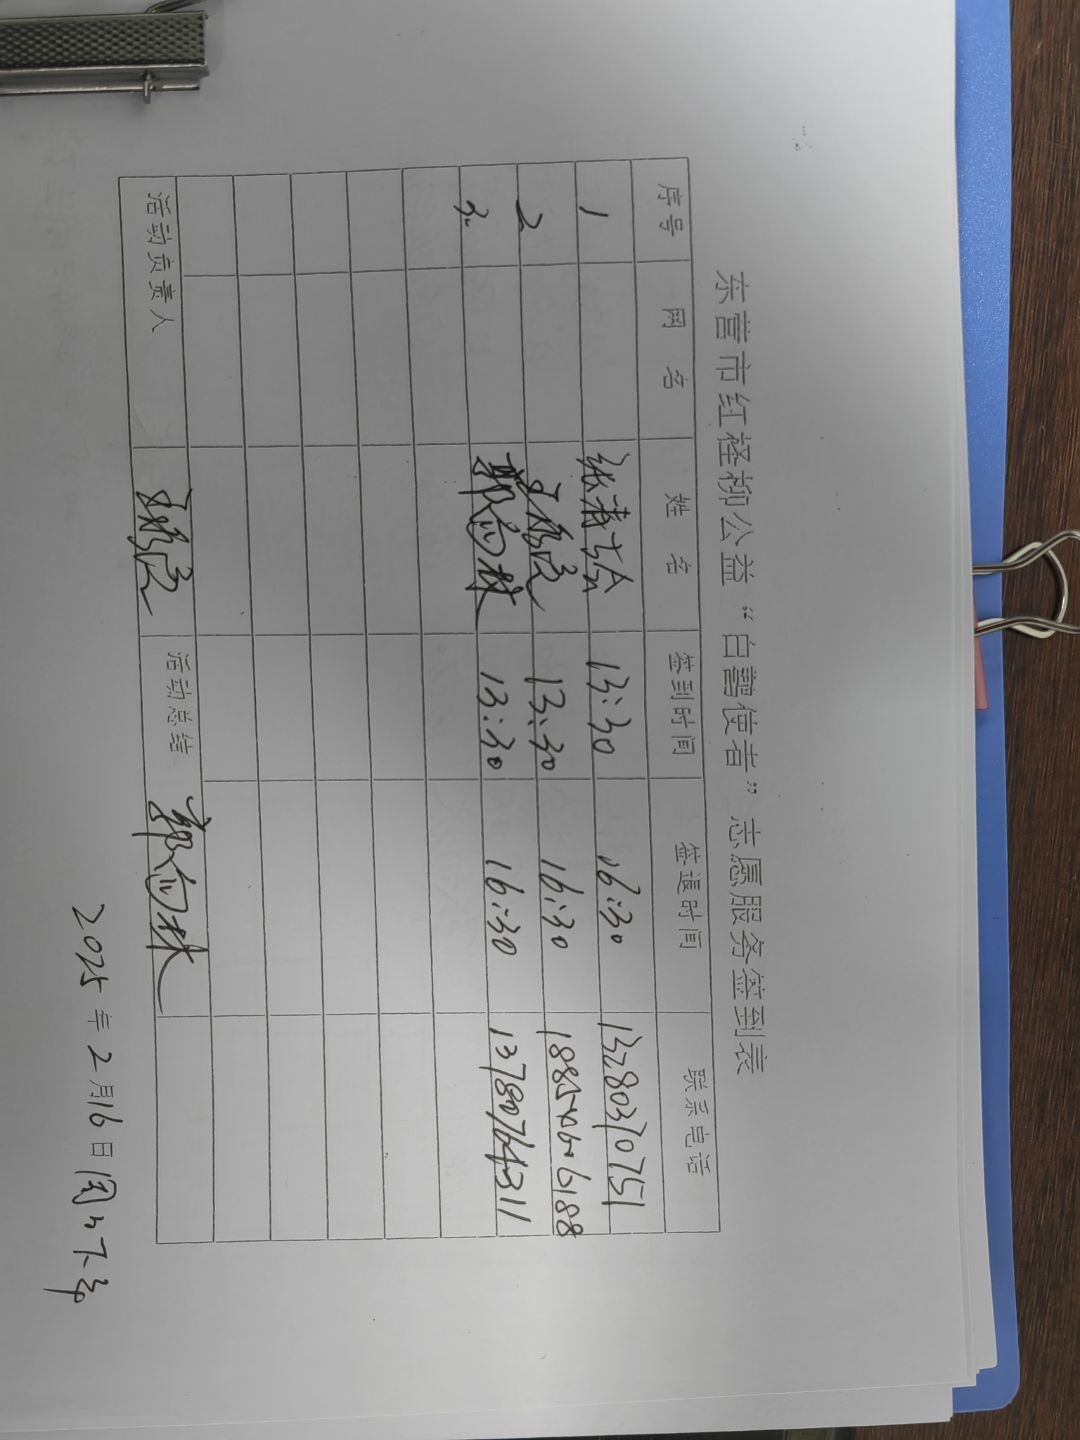 东营市红柽柳公益“白鹭使者”志愿服务签到表
序号 网名 姓名 签到时间 签退时间 联系电话
1 13:30 16:30 13280370751
2 13:30 16:30
3 郭向林 13:30 16:30 13780764311
活动负责人 活动总结 郭向林
2025年2月16日周日下午